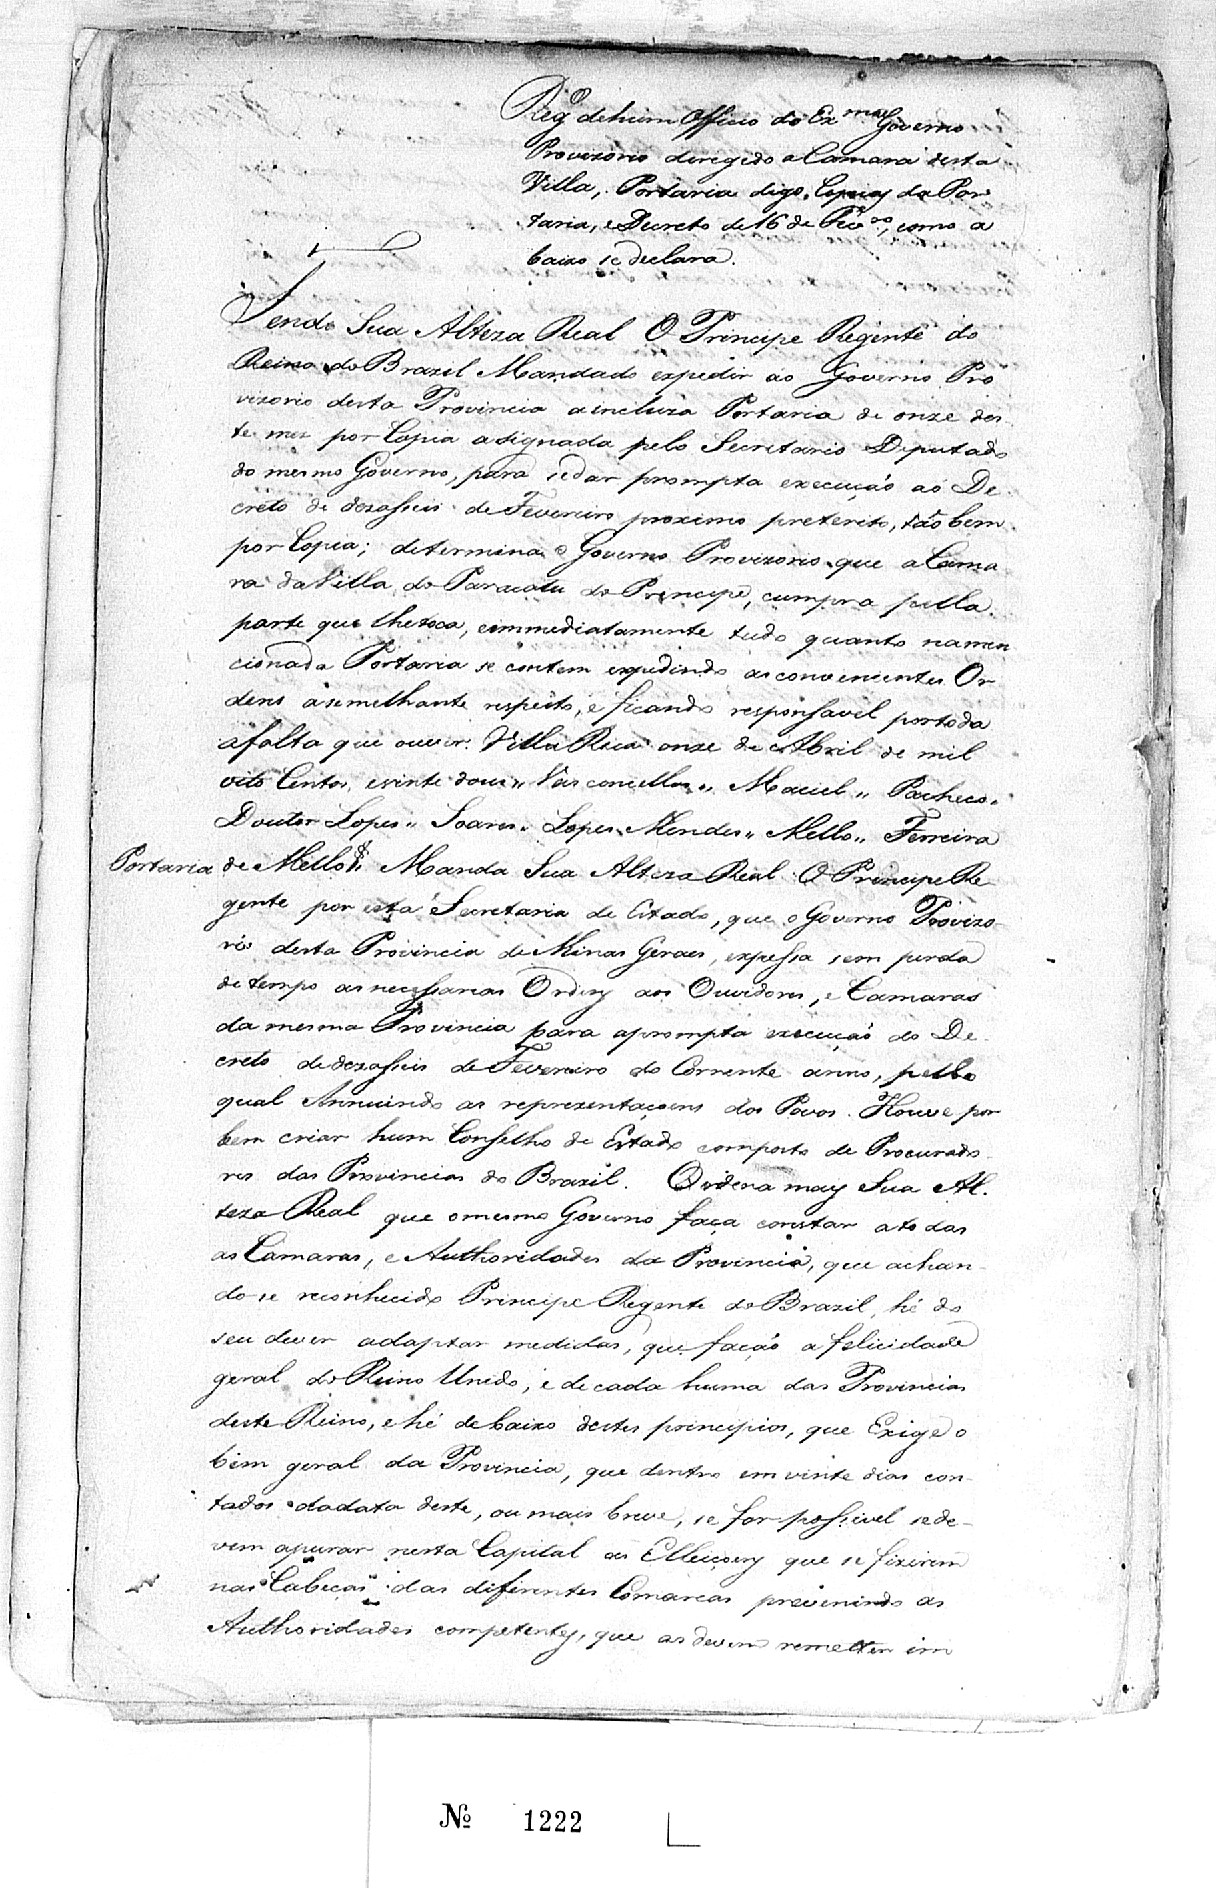 Reg.º de hum Officio do Ex.mo Governo
Provizorio deregedo a Camara desta
Villa, Portaria digo, Copias da Por
taria, e Decreto de 16 de Fev.ro, como a
baixo se declara.
Sendo Sua Alteza Real O Principe Regente do
Reino do Brazil Mandado expedir ao Governo Pro
vizorio desta Provincia a incluza Portaria de onze des
te mes por Copia asignada pelo Secretario Deputado
do mesmo Governo, para se dar prompta execução ao De
creto de dezasseis de Fevereiro proximo preterito, tão bem
por Copia; determina o Governo Provizorio que a Cama
ra da Villa do Paracatu do Principe, cumpra pella
parte que lhe toca, e immediatamente tudo quanto na men
cionada Portaria se contem expedindo as convenientes Or
dens a semelhante respeito, e ficando responsavel por toda
a falta que ouver. Villa Rica onze de Abril de mil
oito Centos, e vinte dous,, Vasconcellos,, Maciel,, Pacheco,,
Doutor Lopes,, Soares,, Lopes Mendes,, Mello,, Ferreira
Portaria de Mello $,, Manda Sua Alteza Real O Principe Re
gente por esta Secretaria de Estado, que o Governo Provizo-
rio desta Provincia de Minas Geraes, expessa sem perda
de tempo as necessarias Ordeñs aos Ouvidores, e Camaras
da mesma Provincia para a prompta execução do De-
creto de dezasseis de Fevereiro do Corrente anno, pello
qual Annuindo as reprezentaçoens dos Povos. Houve por
bem criar hum Conselho de Estado composto de Procurado-
res das Provincias do Brazil. Ordena mais Sua Al.
teza Real que o mesmo Governo faça constar a todas
as Camaras, e Authoridades da Provincia, que achan-
do-se reconhecido Principe Regente do Brazil, hé do
seu dever adaptar medidas, que fação a felicidade
geral do Reino Unido, e de cada huma das Provincias
deste Reino, e hé debaixo destes principios, que Exige o
bem geral da Provincia, que dentro em vinte dias con-
tados da data deste, ou mais breve, se for possivel se de-
vem apurar nesta Capital as Elleiçoens que se fizerem
nas Cabeças das diferentes Comarcas prevenindo as
Authoridades competentes, que as devem remetter im
Nº 1222